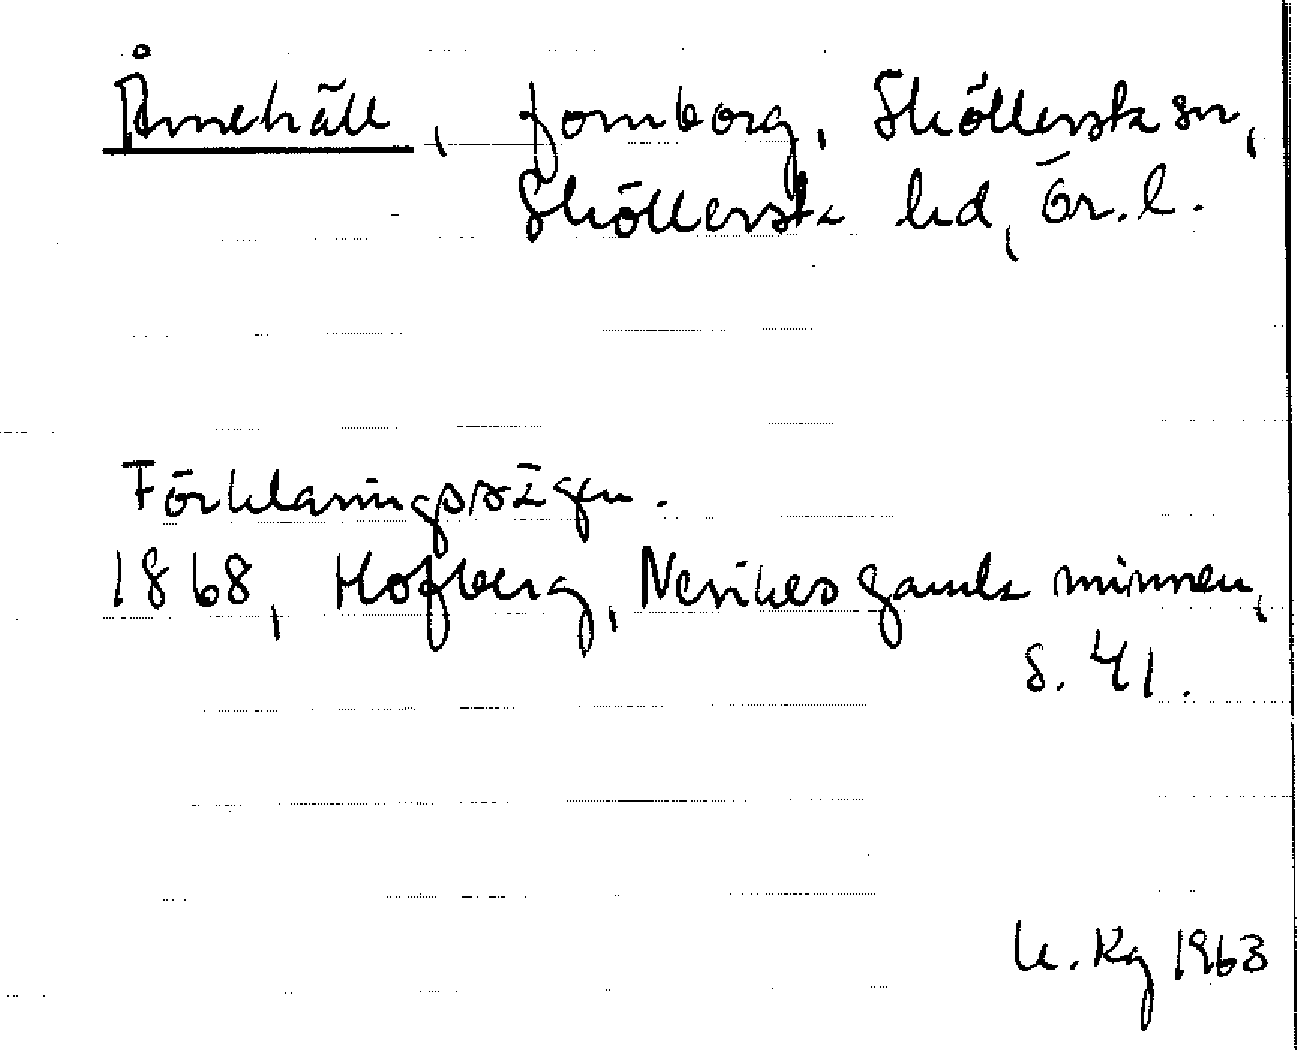 Ånnehäll, fornborg, Sköllersta sn,
Sköllersta hd, Ör. l.
Förklaringssägen.
1868, Hofberg, Nerikes gamla minnen,
s. 41.
U. Kg 1963